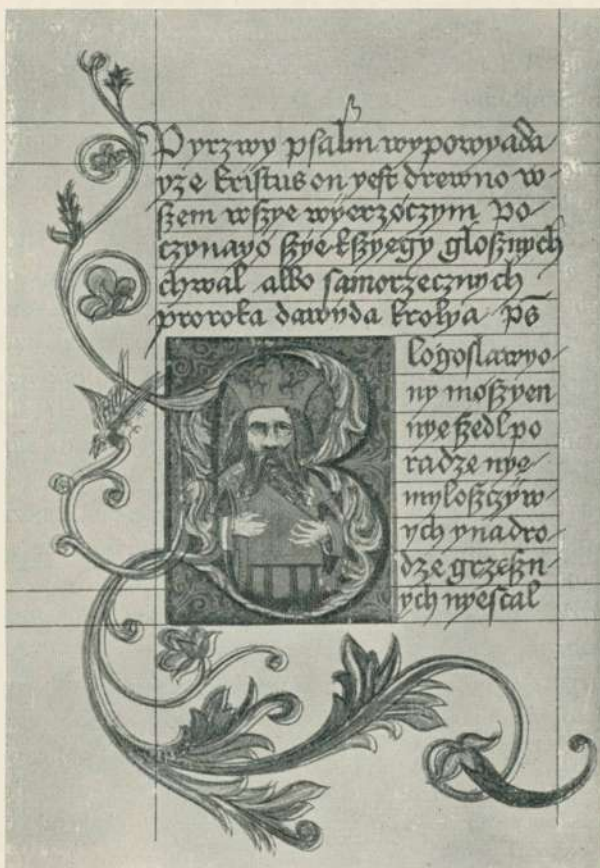 Pyrzwy psalm wypowyada
yze kristus on yest drewno w
szem wszye wyerzóczym Po
czynayó szye kszyegy glosznych
chwal albo samorzecznych
proroka dawyda krolya ps̄
B
logoslawyo
ny moszyen
nye szedl po
radze nye
myloszczyw
ych ynadro
dze grzeszn
ych nyestal